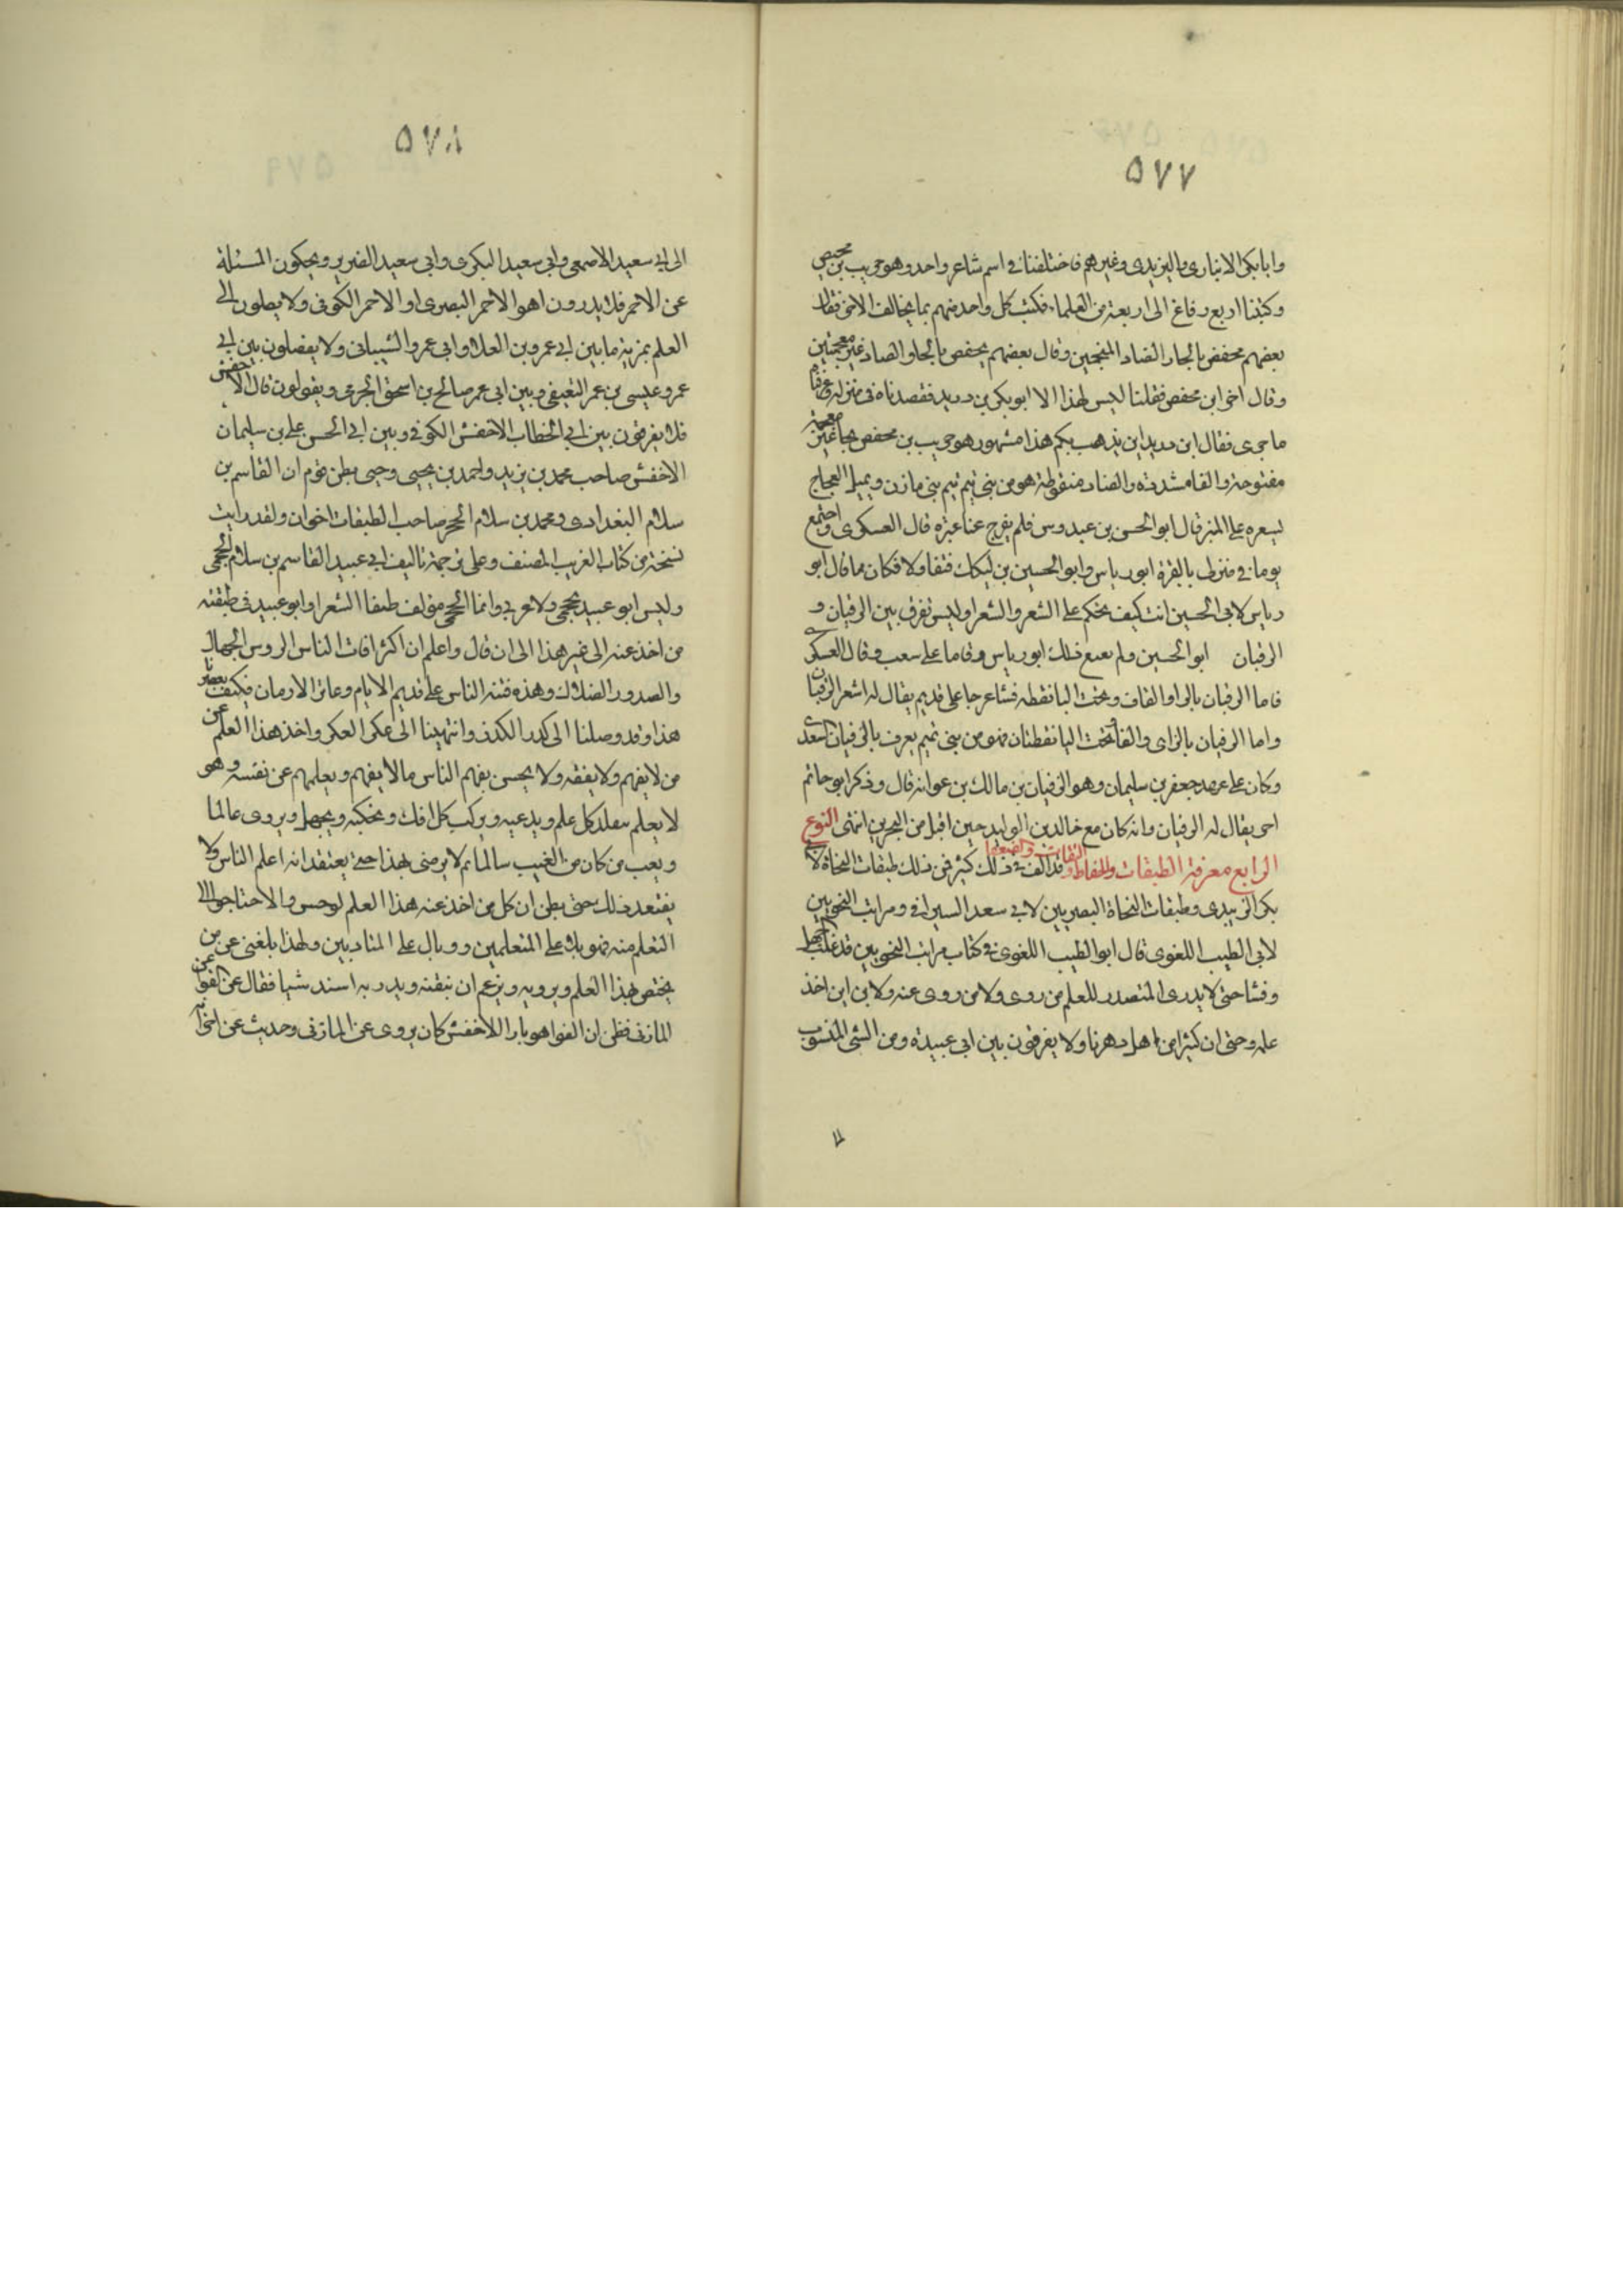 ٥٧٧
وابا بكر الانبارى واليزيدى وغيرهم فاختلفنا فى اسم شاعر واحد وهو حريب بن محيص
وكتبنا اربع رقاع الى اربعة من العلما فكتب كل واحد منهم بما يخالف الاخر فقال
بعضهم محفض بالحاء والضاد المنجمين وقال بعضهم محفص بالحا والصاد غير معجمتين
وقال اخر ابن محفص فقلنا ليس لهذا الا ابو بكر بن دريد فقصدناه فى منزله وعرفناه
ما جرى فقال ابن دريد اين يذهب بكم هذا مشهور هو حريب بن محفض بحا غير معجمة
مفتوحة والفا مشددة والضاد منقوطة هو من بنى تيم تيم بنى مازن ويميل العجاج
لسعره على المنبر قال ابو الحسن بن عبدوس فلم يفرج عنا غيره قال العسكرى واجتمع
يوما فى منزلى بالبقرة ابو رياس وابو الحسين بن لنكك فتقاولا فكان مما قال ابو
رياس لابى الحسين انت كيف تحكم على الشعر والشعرا وليس تفرق بين الرقبان و
الرفيان ابو الحسين ولم يقنع ذلك ابو رياس وقاما على سعب وقال العسكرى
فاما الرقبان بالرا والقاف وتحت البا نقطة فشاعر جاهلى قديم يقال له اشعر الرقبان
واما الزفيان بالزاى والفا وتحت اليا نقطتان فهو من بنى تميم يعرف بالزفيان السعدى
وكان على عهد جعفر بن سليمان وهو الزفيان بن مالك بن عوانه قال وذكر ابو حاتم
اخر يقال له الزفيان وانه كان مع خالد بن الوليد حين اقبل من البحرين انتهى النوع
الرابع معرفة الطبقات والحفاظ والثقات والضعفا وقد الف فى ذلك كثير فمن ذلك طبقات النحاة لابى
بكر الزبيدى وطبقات النحاة البصريين لابى سعد السيرافى ومراتب النحويين
لابى الطيب اللغوى قال ابو الطيب اللغوى فى كتاب مراتب النحويين قد غلب الجهل
وفشا حتى لا يدرى المتصدر للعلم من روى ولا من روى عنه ولا من اين اخذ
علمه وحتى ان كثيرا من اهل دهرنا ولا يفرقون بين ابى عبيدة ومن الشى المنسوب
٥٧٨
الى ابى سعيد الاصمعى وابى سعيد البكرى وابى سعيد الضرير ويحكون المسئلة
عن الاحمر فلا يدرون اهو الاحمر البصرى او الاحمر الكوفى ولا يصلون الى
العلم بمزية ما بين ابى عمرو بن العلا وابى عمرو الشيبانى ولا يفصلون بين ابى
عمرو عيسى بن عمر الثقفى وبين ابى عمر صالح بن اسحق الجرمى ويقولون قال الاخفش
فلا يفرقون بين ابى الخطاب الاخفش الكوفى وبين ابى الحسن على بن سليمان
الاخفش صاحب محمد بن يزيد واحمد بن يحيى وحتى يظن قوم ان القاسم بن
سلام البغدادى ومحمد بن سلام الجحر صاحب الطبقات اخوان ولقد رايت
نسخة من كتاب الغريب المصنف وعلى ترجمة تاليف ابى عبيد القاسم بن سلام الجمحى
وليس ابو عبيد بجمحى ولا عربى وانما الجمحى مؤلف طبقات الشعرا وابو عبيد فى طبقته
من اخذ عنه الى غير هذا الى ان قال واعلم ان اكثر افات الناس الروس الجهال
والصدور الضلال وهذه فتنه الناس على قديم الايام وعابر الازمان فكيف بعصرنا
هذا وقد وصلنا الى كدر الكدر وانتهينا الى عكر العكر واخذ هذا العلم عن
من لا يفهم ولا يفقه ولا يحسن يفهم الناس مالا يفهم ويعلمهم عن نفسه وهو
لا يعلم يتقلد كل علم ويدعيه ويركب كل افك ويحكيه ويجهل ويروى عالما
ويعيب من كان من الغيب سالما ثم لا يرضى بهذا حتى يعتقد انه اعلم الناس ولا
يقنعه ذلك حتى يظن ان كل من اخذ عنه هذا العلم لو حسر والاحتاجوا الى
التعلم منه فهو بلا على المتعلمين ووبال على المتادبين ولهذا بلغنى عن من
يختص بهذا العلم ويرويه ويزعم ان يتقنه ويدريه اسند شيا فقال عن الفرا عن
المازنى فظن ان الفرا هو بازا الاخفش كان يروى عن المازنى وحديث عن اخر انه